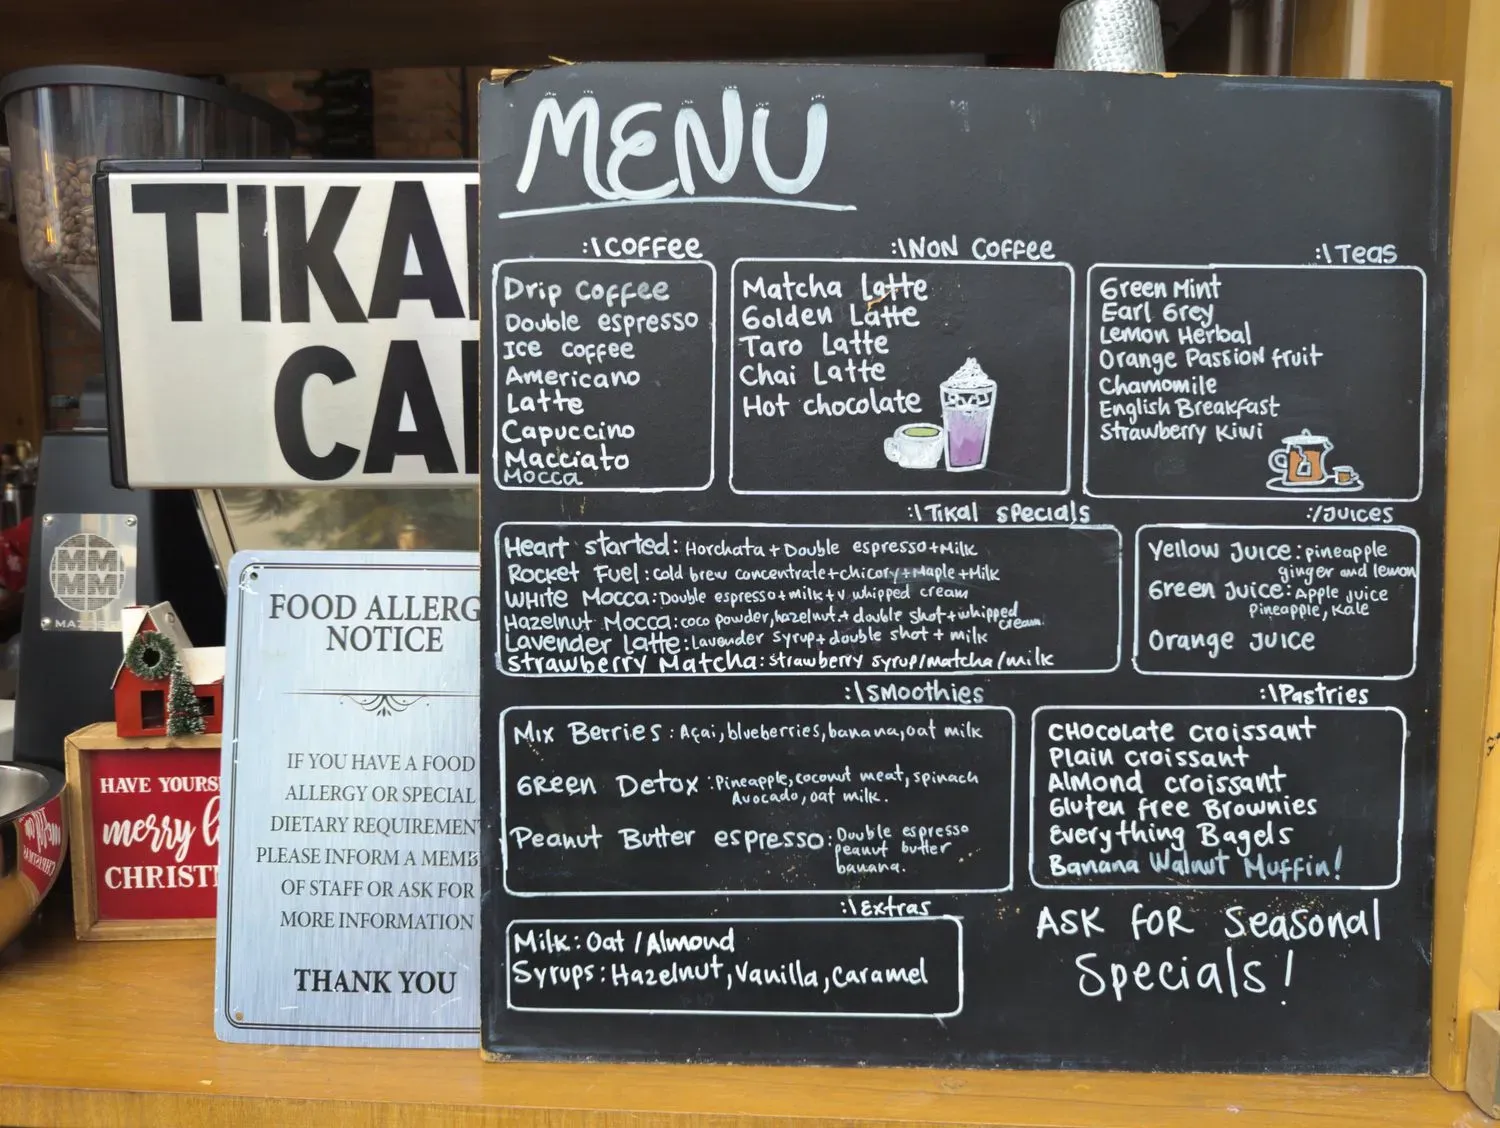 TIKAL
CA
MENU
:\COFFEE
Drip Coffee
Double espresso
Ice coffee
Americano
Latte
Capuccino
Macciato
Mocca
:\NON COFFEE
Matcha Latte
Golden Latte
Taro Latte
Chai Latte
Hot chocolate
:\Teas
Green Mint
Earl Grey
Lemon Herbal
Orange Passion fruit
Chamomile
English Breakfast
Strawberry Kiwi
:\Tikal specials
Heart started: Horchata + Double espresso + Milk
Rocket Fuel: cold brew concentrate + chicory + Maple + Milk
White Mocca: Double espresso + milk + v. whipped cream
Hazelnut Mocca: coco powder, hazelnut + double shot + whipped cream
Lavender Latte: Lavender syrup + double shot + milk
Strawberry Matcha: strawberry syrup/matcha/milk
:/Juices
Yellow Juice: pineapple
ginger and lemon
Green Juice: Apple juice
pineapple, kale
Orange Juice
:\Smoothies
Mix Berries: Açai, blueberries, banana, oat milk
Green Detox: Pineapple, coconut meat, spinach
Avocado, oat milk.
Peanut Butter espresso: Double espresso
peanut butter
banana.
:\Pastries
Chocolate croissant
Plain croissant
Almond croissant
Gluten free Brownies
Everything Bagels
Banana Walnut Muffin!
:\Extras
Milk: Oat / Almond
Syrups: Hazelnut, Vanilla, Caramel
Ask for Seasonal
Specials!
FOOD ALLERG
NOTICE
IF YOU HAVE A FOOD
ALLERGY OR SPECIAL
DIETARY REQUIREMENT
PLEASE INFORM A MEMB
OF STAFF OR ASK FOR
MORE INFORMATION
THANK YOU
HAVE YOURS
merry l
CHRIST
MM
MM